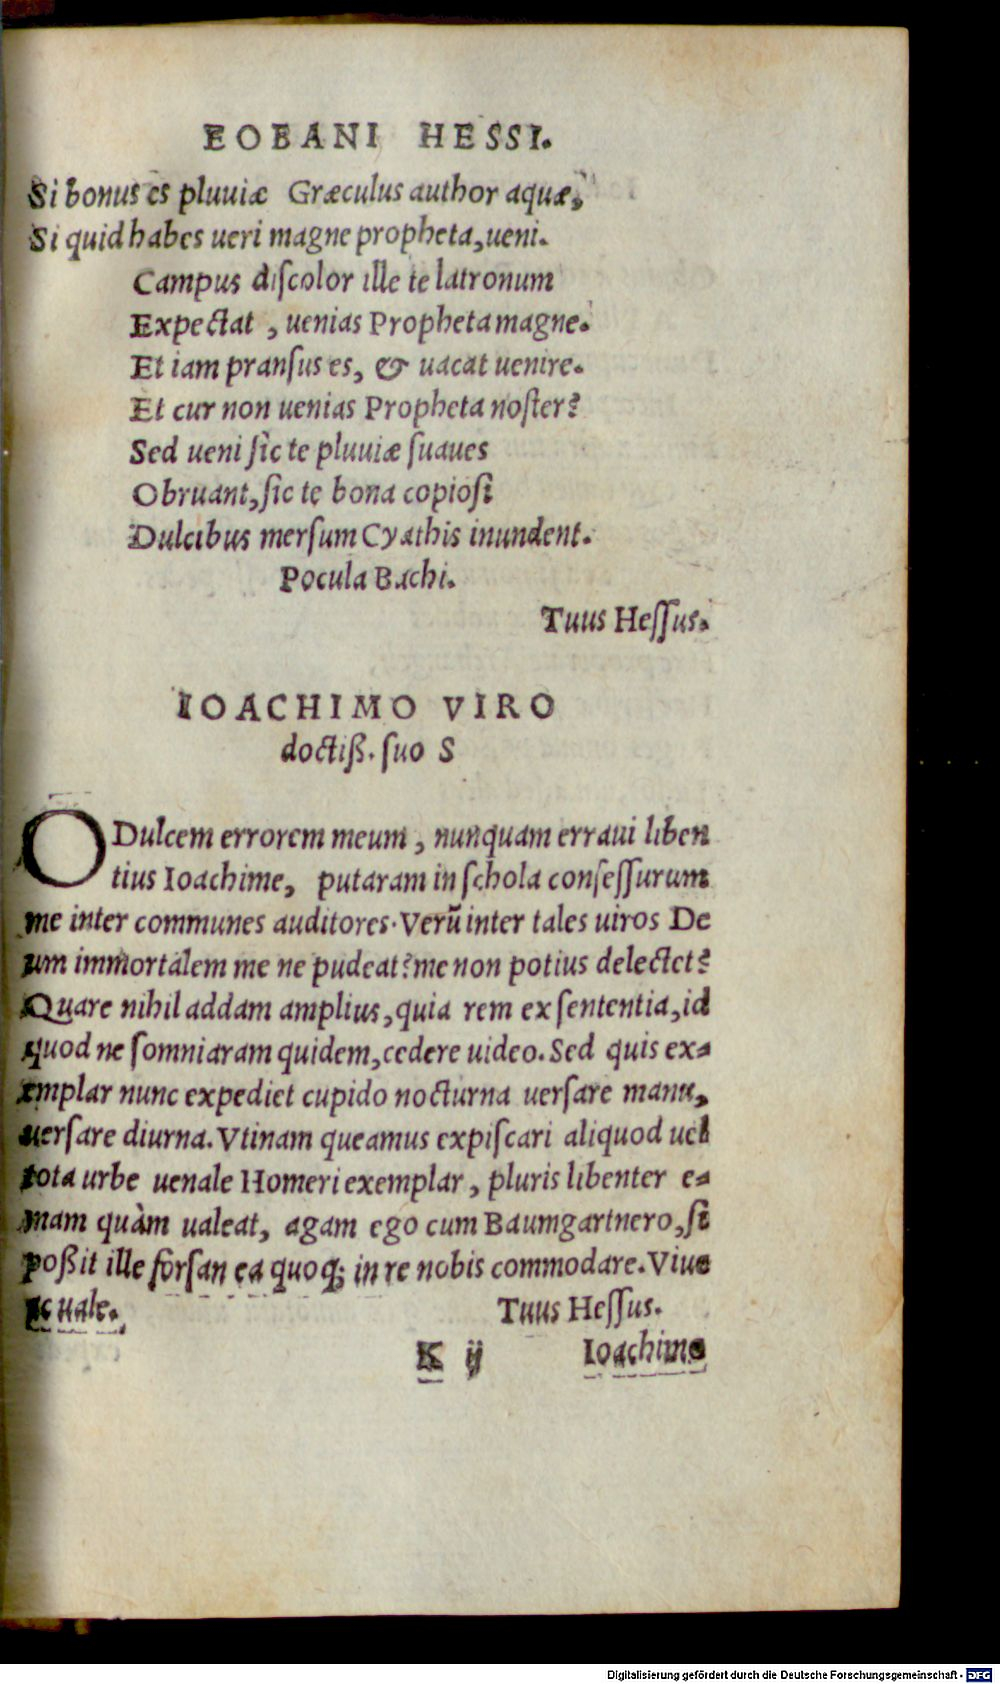 EOBANI HESSI.
Si bonus es pluuiæ Græculus author aquæ,
Si quid habes ueri magne propheta, ueni.
Campus diſcolor ille te latronum
Expectat, uenias Propheta magne.
Et iam pranſus es, & uacat uenire.
Et cur non uenias Propheta noſter?
Sed ueni ſic te pluuiæ ſuaues
Obruant, ſic te bona copioſi
Dulcibus merſum Cyathis inundent.
Pocula Bachi.
Tuus Heſſus.
IOACHIMO VIRO
doctiß. ſuo S
O Dulcem errorem meum, nunquam erraui liben
tius Ioachime, putaram in ſchola conſeſſurum
me inter communes auditores. Verũ inter tales uiros De
um immortalem me ne pudeat? me non potius delectet?
Quare nihil addam amplius, quia rem ex ſententia, id
quod ne ſomniaram quidem, cedere uideo. Sed quis ex-
emplar nunc expediet cupido nocturna uerſare manu,
uerſare diurna. Vtinam queamus expiſcari aliquod uel
tota urbe uenale Homeri exemplar, pluris libenter e-
mam quàm ualeat, agam ego cum Baumgartnero, ſi
poßit ille forſan ea quoq; in re nobis commodare. Viue
ac uale. Tuus Heſſus.
K ij Ioachimo
Digitalisierung gefördert durch die Deutsche Forschungsgemeinschaft - DFG